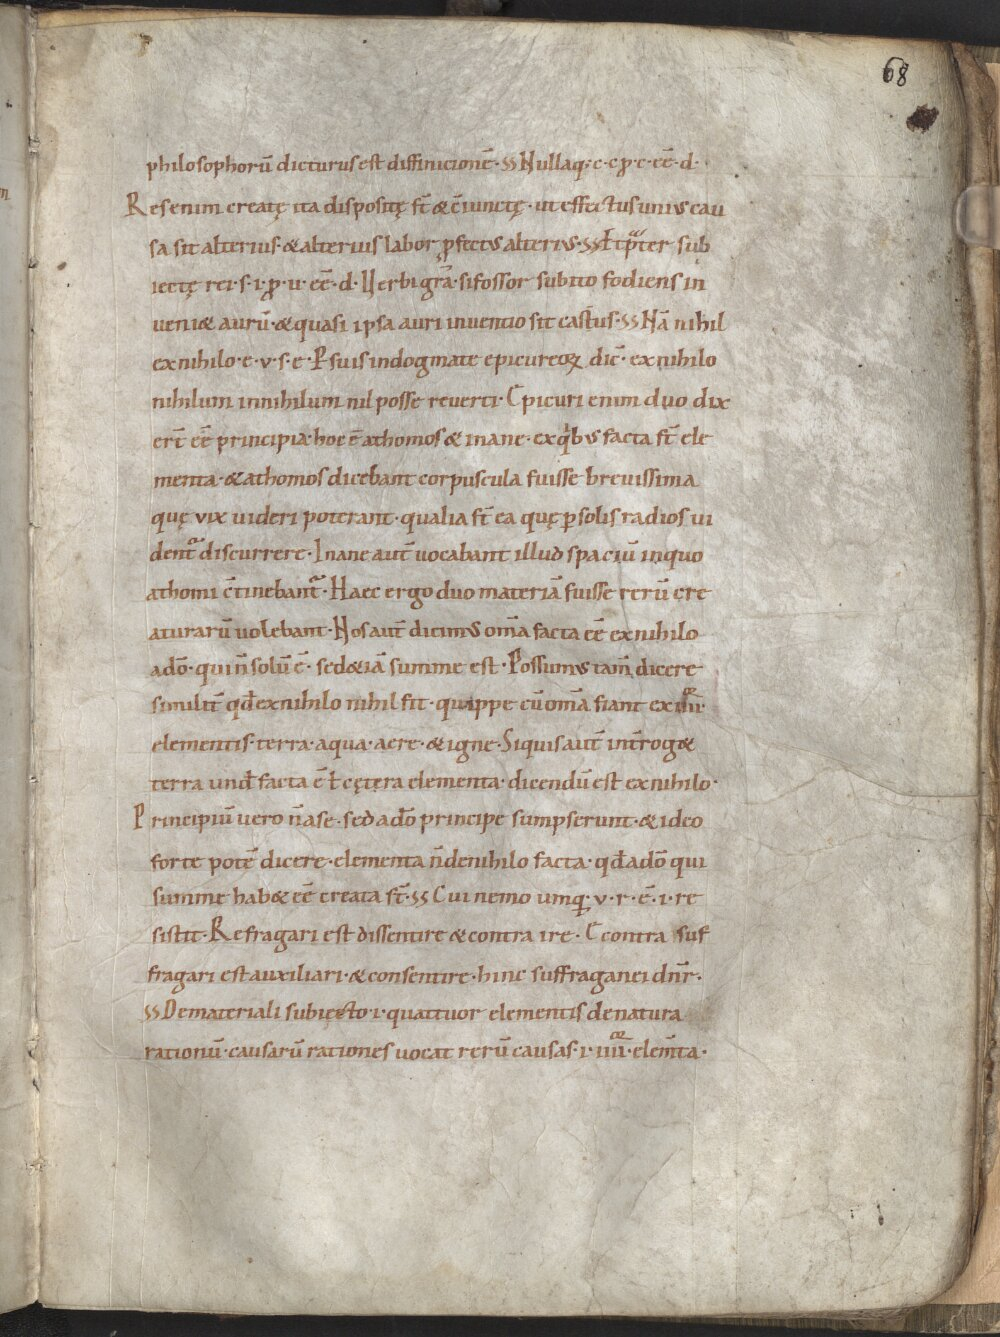 68
philosophorū dicturus est diffinicionē · ʃʃ Nullaq; · c · c ꝓ c · eē · d ·
Res enim creatę ita dispositę st̄ & c̄iunctę · ut effectus unius cau
sa sit alterius · & alterius labor ꝓfectus alterius · ʃʃ Ł ꝓpter sub
iectę rei · s · i · ꝓ · u · eē · d · Verbi gr̄a · si fossor subito fodiens in
veni& aurū · & quasi ipsa auri inventio sit casus · ʃʃ Nā nihil
ex nihilo · e · v · s · e · Psuis in dogmate epicureoꝝ dic̄ · ex nihilo
nihilum in nihilum nil posse reverti · Epicuri enim duo dix
ert̄ eē principia · hoc ē athomos & inane · ex qͥbus facta st̄ ele
menta · & athomos dicebant corpuscula fuisse brevissima
quę vix uideri poterant · qualia st̄ ea quę ꝑ solis radios ui
dent᷑ discurrere · Inane aut̄ uocabant illud spaciū in quo
athomi c̄tinebant᷑ · Haec ergo duo materiā fuisse rerū cre
aturarū volebant · Nos aut̄ dicimus om̄a facta eē ex nihilo
a dō · qui n̄ solū ē · sed &iā summe est · Possumus tam̄ dicere
similit̄ qđ ex nihilo nihil fit · quippe cū om̄a fiant ex iiiior ·
elementis · terra · aqua · aere · & igne · Si quis aut̄ int̄rog&
terra und̄ facta ē ł cętera elementa · dicendū est ex nihilo ·
Principiū vero n̄ a se · sed a dō principe sumpserunt · & ideo
forte potē dicere · elementa n̄ de nihilo facta · qđ a dō qui
summe hab& eē creata st̄ · ʃʃ Cui nemo umq̄ · v · r · ē · i · re
sistit · Refragari est dissentire & contra ire · E contra suf
fragari est auxiliari · & consentire · hinc suffraganei dn̄r ·
ʃʃ De materiali subiecto · i · quattuor elementis de natura
rationū · causarū rationes uocat rerū causas · i · iiiior · elem̄ta ·